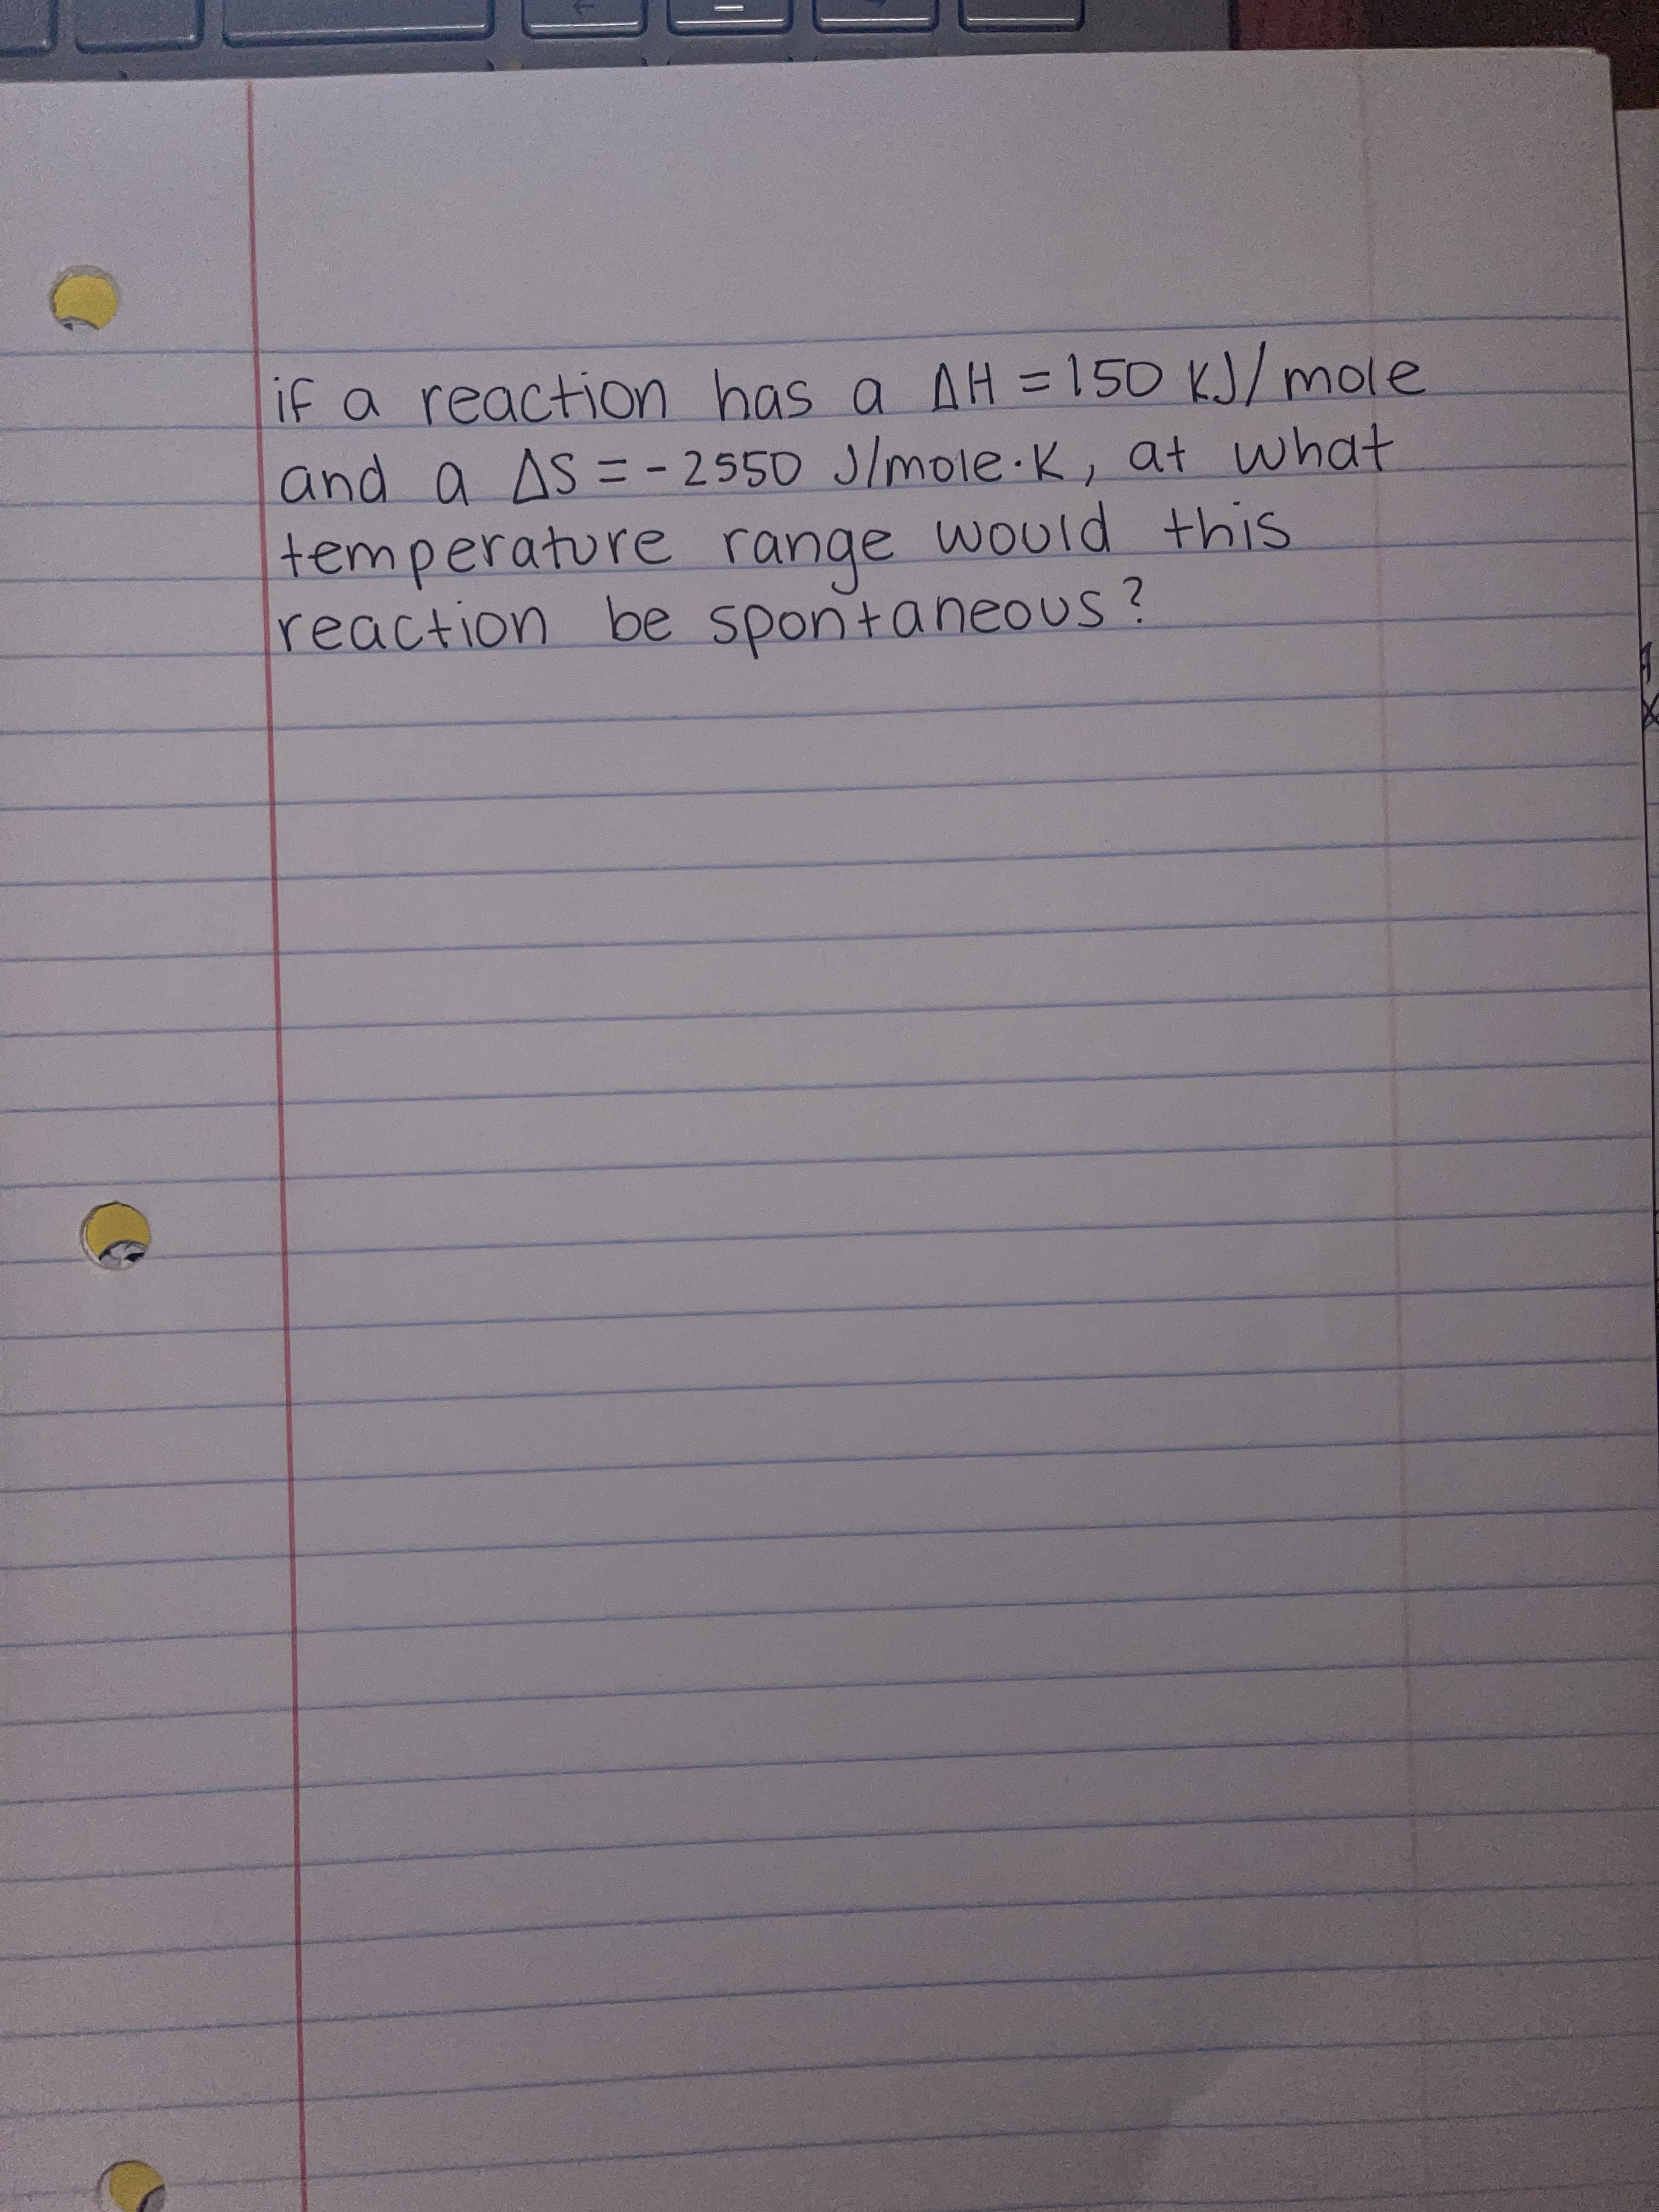 if a reaction has a ΔH = 150 KJ/mole
and a ΔS = -2550 J/mole·K, at what
temperature range would this
reaction be spontaneous?